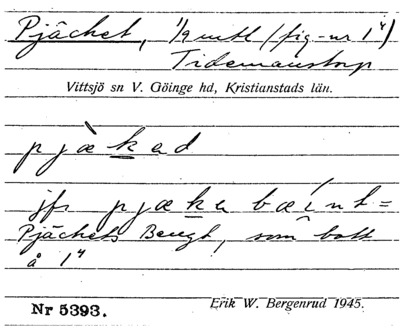 Pjächet, 1/9 mtl (fig-nr 1⁴)
Tidemanstorp
Vittsjö sn V. Göinge hd, Kristianstads län.
pjäkad
jfr pjäka bäint =
Pjächets Bengt, som bott
å 1⁴
Nr 5393.
Erik W. Bergenrud 1945.